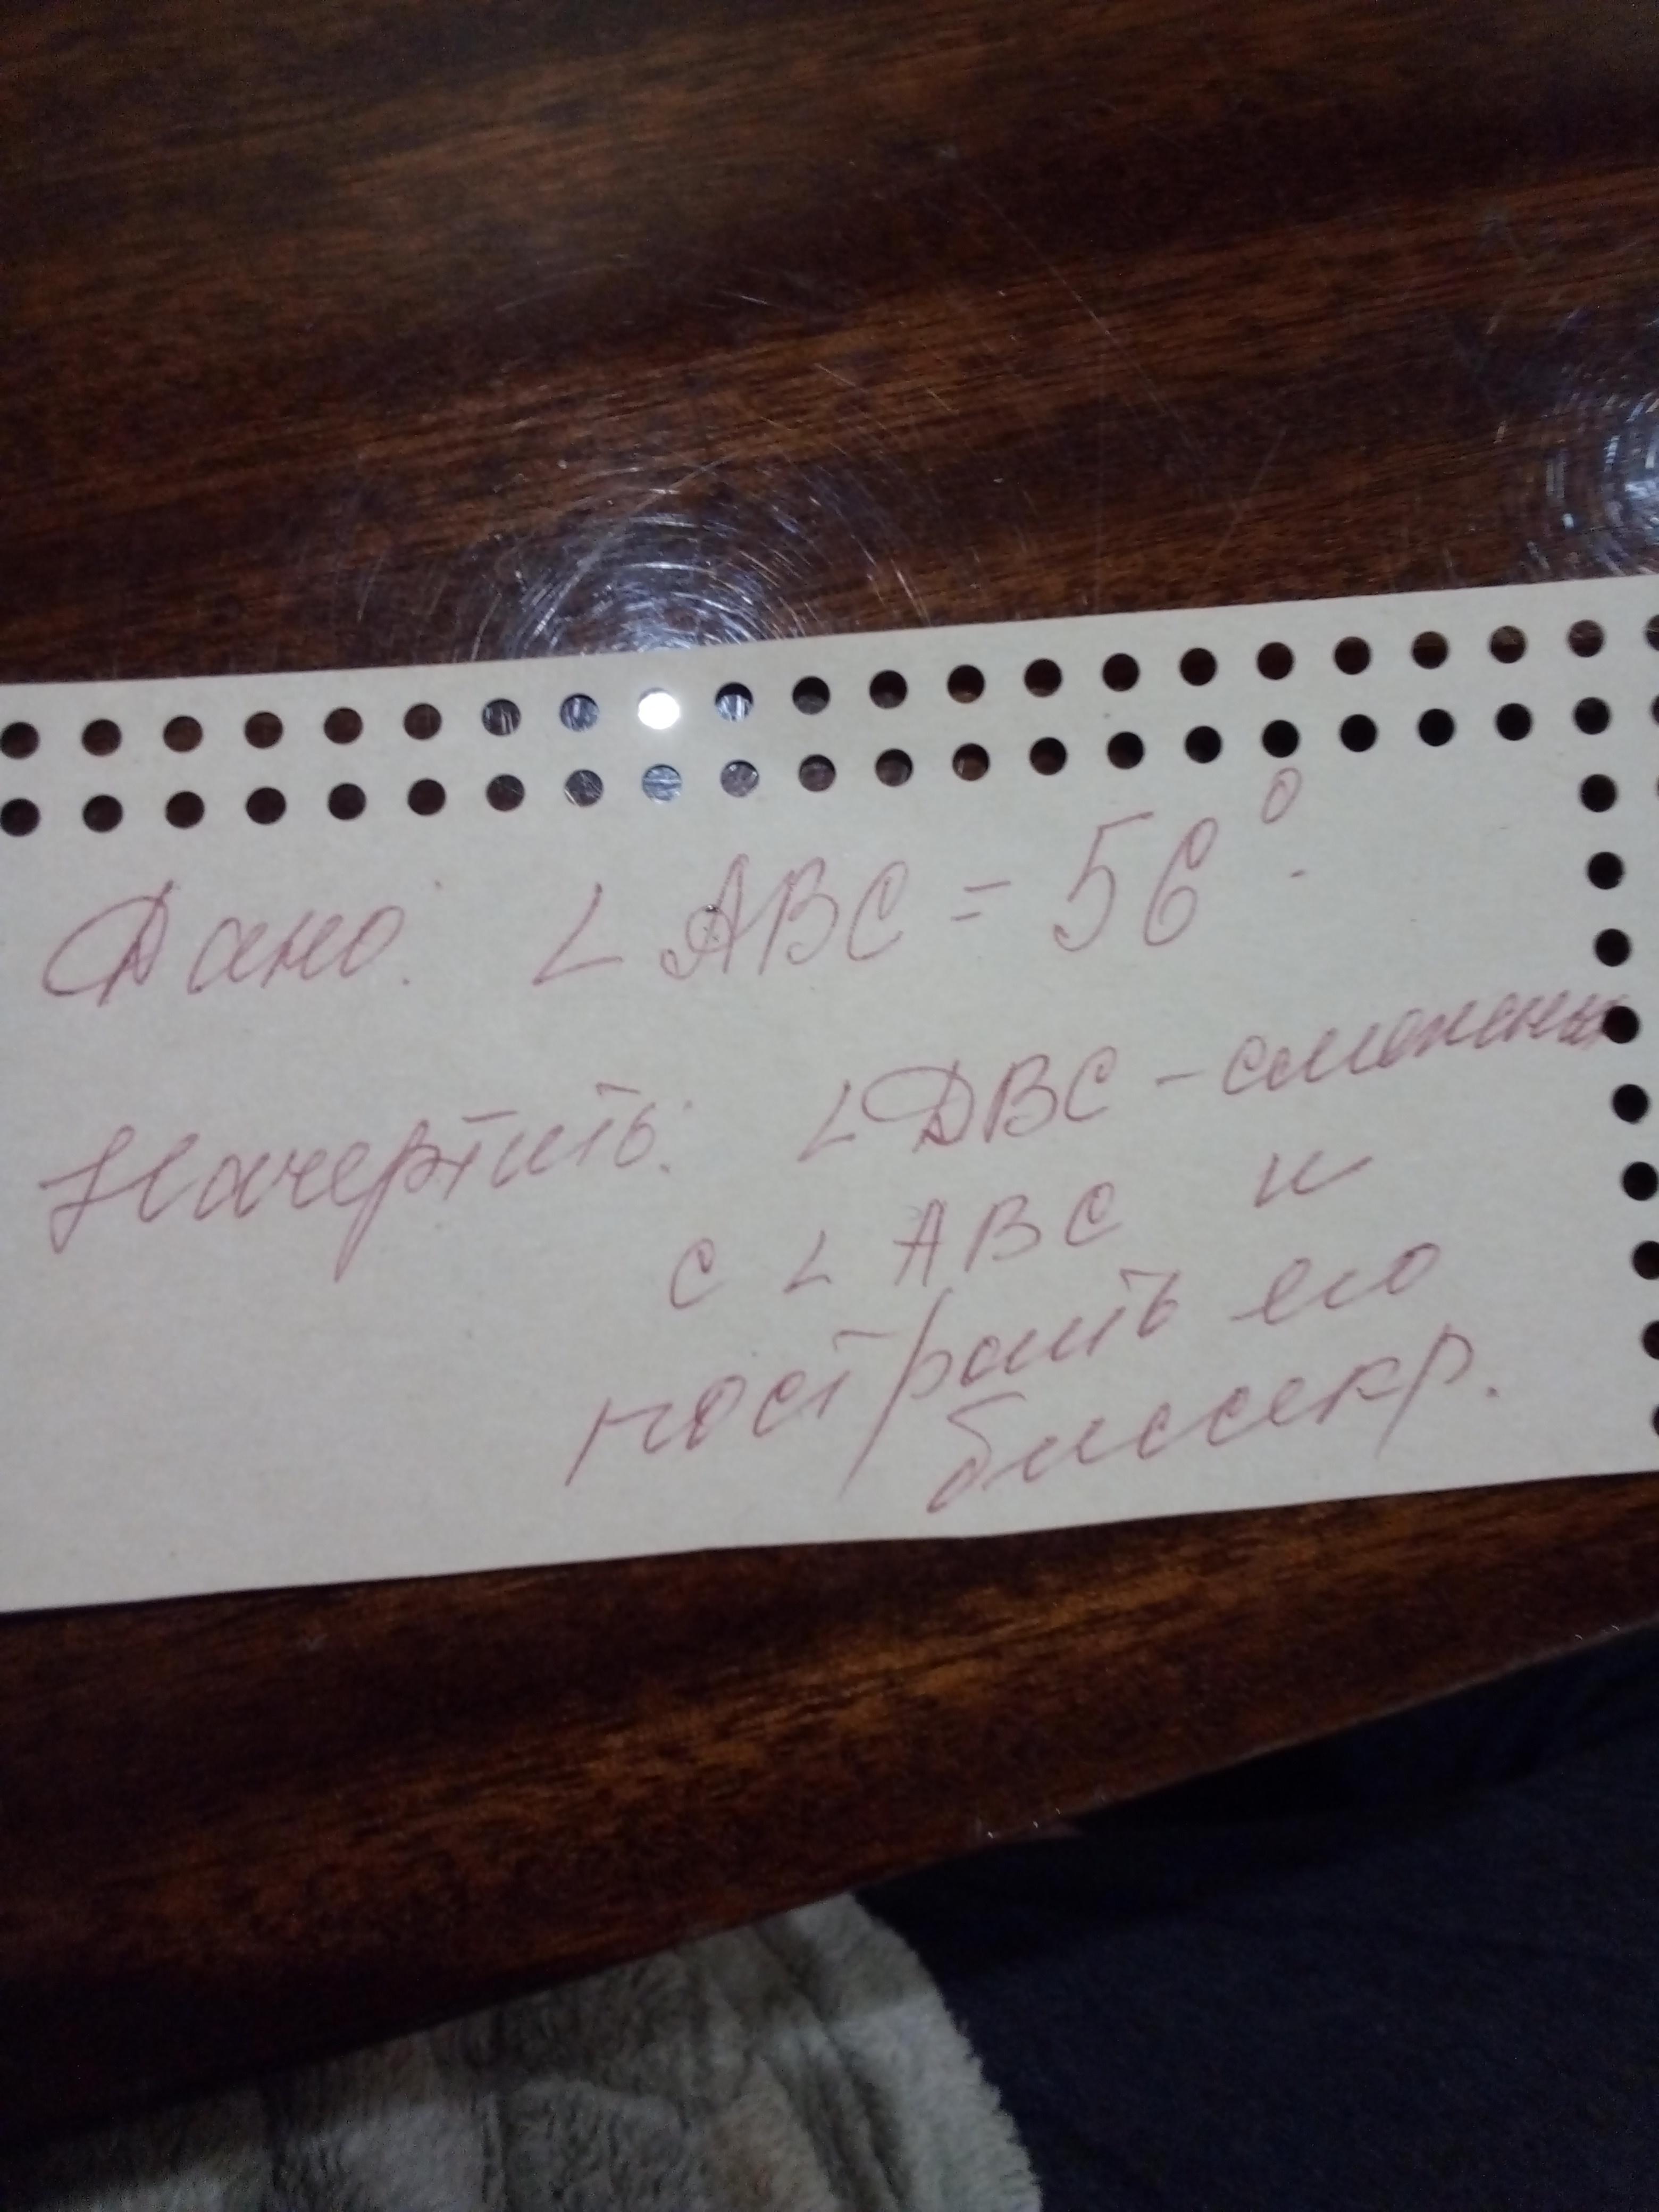 Дано: ∠ABC = 56°.
Начертить: ∠DBC – смежный
с ∠ABC и
построить его
биссекр.